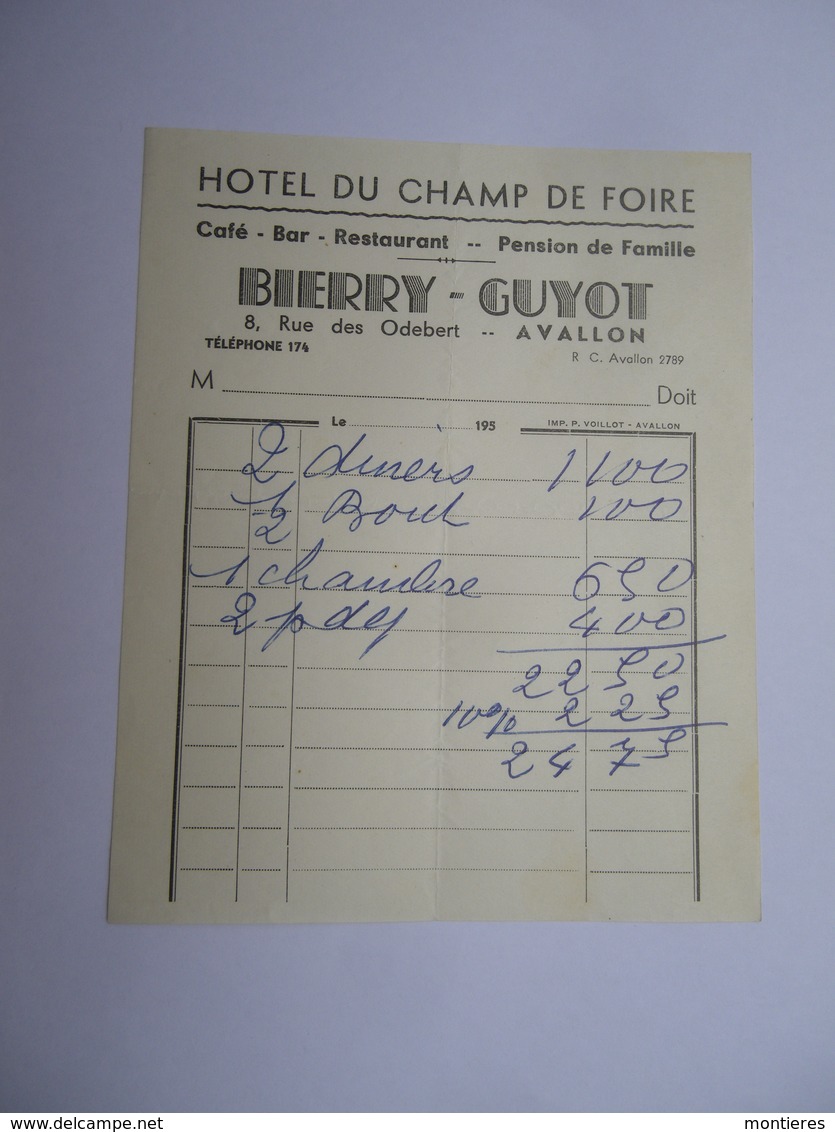 HOTEL DU CHAMP DE FOIRE
Café - Bar - Restaurant -- Pension de Famille
BIERRY - GUYOT
8, Rue des Odebert -- AVALLON
TÉLÉPHONE 174
R C. Avallon 2789
M Doit
Le 195 IMP. P. VOILLOT - AVALLON
2 diners 1100
1/2 Bout 100
1 chambre 650
2 pdj 400
2250
10% 225
2475
www.delcampe.net
montieres